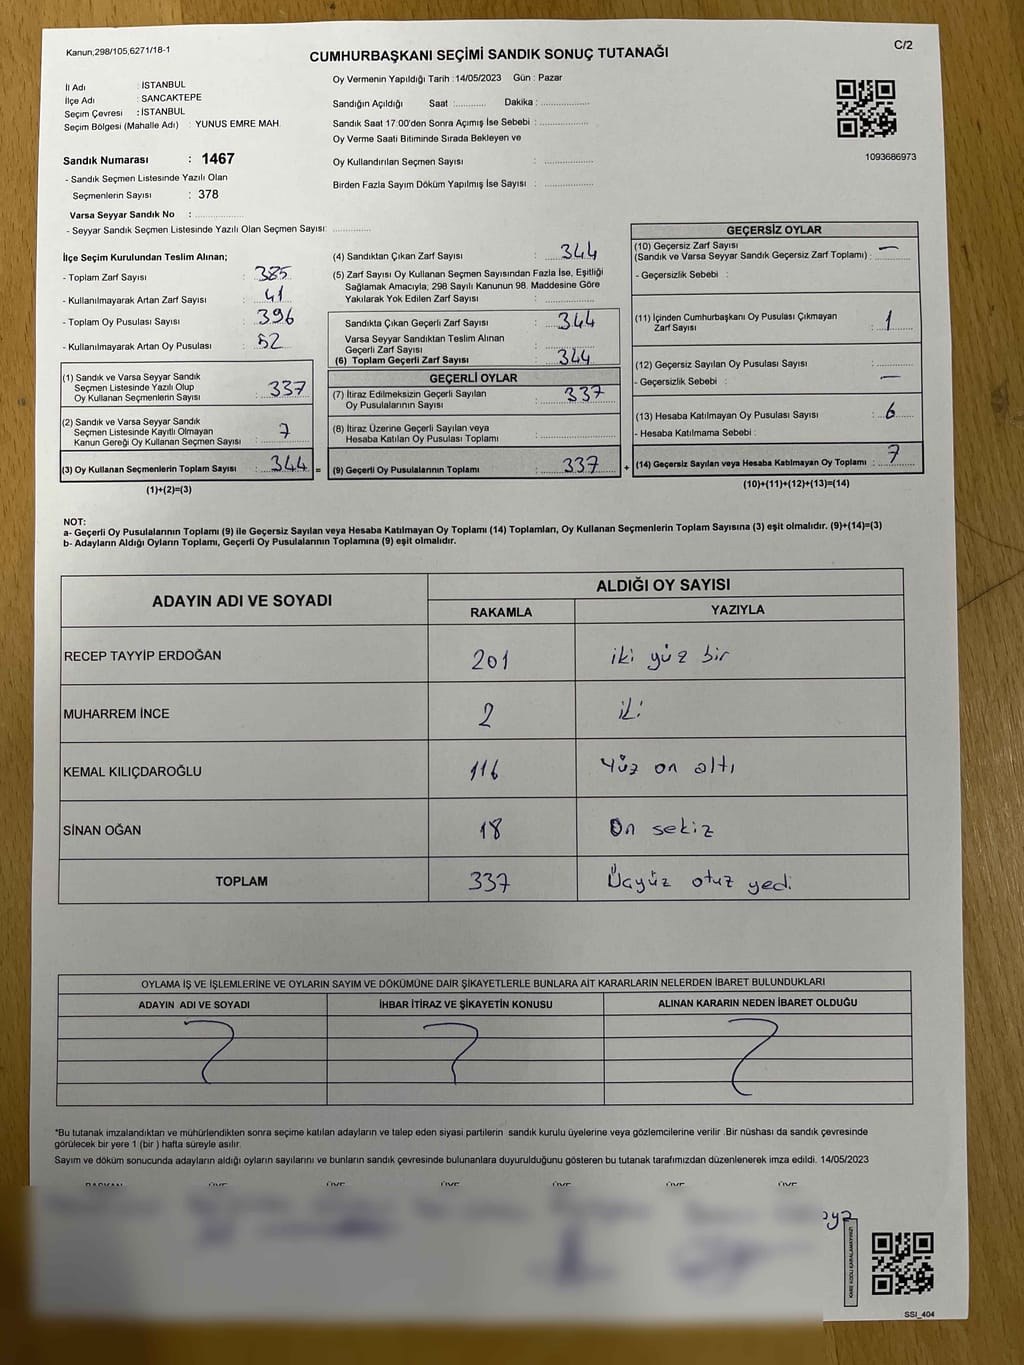 Kanun;298/105;6271/18-1
C/2
CUMHURBAŞKANI SEÇİMİ SANDIK SONUÇ TUTANAĞI
İl Adı : İSTANBUL
İlçe Adı : SANCAKTEPE
Seçim Çevresi : İSTANBUL
Seçim Bölgesi (Mahalle Adı) : YUNUS EMRE MAH.
Sandık Numarası : 1467
- Sandık Seçmen Listesinde Yazılı Olan
Seçmenlerin Sayısı : 378
Varsa Seyyar Sandık No :
- Seyyar Sandık Seçmen Listesinde Yazılı Olan Seçmen Sayısı:
Oy Vermenin Yapıldığı Tarih :14/05/2023 Gün : Pazar
Sandığın Açıldığı Saat : Dakika :
Sandık Saat 17:00'den Sonra Açımış İse Sebebi :
Oy Verme Saati Bitiminde Sırada Bekleyen ve
Oy Kullandırılan Seçmen Sayısı :
Birden Fazla Sayım Döküm Yapılmış İse Sayısı :
1093686973
İlçe Seçim Kurulundan Teslim Alınan;
- Toplam Zarf Sayısı : 385
- Kullanılmayarak Artan Zarf Sayısı : 41
- Toplam Oy Pusulası Sayısı : 396
- Kullanılmayarak Artan Oy Pusulası : 52
(1) Sandık ve Varsa Seyyar Sandık
Seçmen Listesinde Yazılı Olup
Oy Kullanan Seçmenlerin Sayısı : 337
(2) Sandık ve Varsa Seyyar Sandık
Seçmen Listesinde Kayıtlı Olmayan
Kanun Gereği Oy Kullanan Seçmen Sayısı : 7
(3) Oy Kullanan Seçmenlerin Toplam Sayısı : 344 =
(1)+(2)=(3)
(4) Sandıktan Çıkan Zarf Sayısı : 344
(5) Zarf Sayısı Oy Kullanan Seçmen Sayısından Fazla İse, Eşitliği
Sağlamak Amacıyla; 298 Sayılı Kanunun 98. Maddesine Göre
Yakılarak Yok Edilen Zarf Sayısı :
Sandıkta Çıkan Geçerli Zarf Sayısı : 344
Varsa Seyyar Sandıktan Teslim Alınan
Geçerli Zarf Sayısı :
(6) Toplam Geçerli Zarf Sayısı : 344
GEÇERLİ OYLAR
(7) İtiraz Edilmeksizin Geçerli Sayılan
Oy Pusulalarının Sayısı : 337
(8) İtiraz Üzerine Geçerli Sayılan veya
Hesaba Katılan Oy Pusulası Toplamı :
(9) Geçerli Oy Pusulalarının Toplamı : 337 +
GEÇERSİZ OYLAR
(10) Geçersiz Zarf Sayısı
(Sandık ve Varsa Seyyar Sandık Geçersiz Zarf Toplamı) : —
- Geçersizlik Sebebi :
(11) İçinden Cumhurbaşkanı Oy Pusulası Çıkmayan
Zarf Sayısı : 1
(12) Geçersiz Sayılan Oy Pusulası Sayısı :
- Geçersizlik Sebebi : —
(13) Hesaba Katılmayan Oy Pusulası Sayısı : 6
- Hesaba Katılmama Sebebi :
(14) Geçersiz Sayılan veya Hesaba Katılmayan Oy Toplamı : 7
(10)+(11)+(12)+(13)=(14)
NOT:
a- Geçerli Oy Pusulalarının Toplamı (9) ile Geçersiz Sayılan veya Hesaba Katılmayan Oy Toplamı (14) Toplamları, Oy Kullanan Seçmenlerin Toplam Sayısına (3) eşit olmalıdır. (9)+(14)=(3)
b- Adayların Aldığı Oyların Toplamı, Geçerli Oy Pusulalarının Toplamına (9) eşit olmalıdır.
ADAYIN ADI VE SOYADI
ALDIĞI OY SAYISI
RAKAMLA YAZIYLA
RECEP TAYYİP ERDOĞAN 201 iki yüz bir
MUHARREM İNCE 2 iki
KEMAL KILIÇDAROĞLU 116 Yüz on altı
SİNAN OĞAN 18 On sekiz
TOPLAM 337 Üçyüz otuz yedi
OYLAMA İŞ VE İŞLEMLERİNE VE OYLARIN SAYIM VE DÖKÜMÜNE DAİR ŞİKAYETLERLE BUNLARA AİT KARARLARIN NELERDEN İBARET BULUNDUKLARI
ADAYIN ADI VE SOYADI İHBAR İTİRAZ VE ŞİKAYETİN KONUSU ALINAN KARARIN NEDEN İBARET OLDUĞU
*Bu tutanak imzalandıktan ve mühürlendikten sonra seçime katılan adayların ve talep eden siyasi partilerin sandık kurulu üyelerine veya gözlemcilerine verilir .Bir nüshası da sandık çevresinde
görülecek bir yere 1 (bir ) hafta süreyle asılır.
Sayım ve döküm sonucunda adayların aldığı oyların sayılarını ve bunların sandık çevresinde bulunanlara duyurulduğunu gösteren bu tutanak tarafımızdan düzenlenerek imza edildi. 14/05/2023
BAŞKAN ÜYE ÜYE ÜYE ÜYE ÜYE ÜYE
KARE KODU KARALAMAYINIZ!
SSI_404